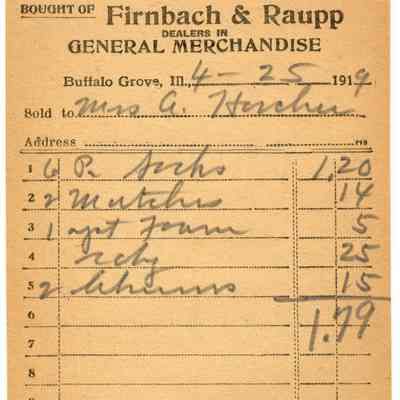 BOUGHT OF Firnbach & Raupp
DEALERS IN
GENERAL MERCHANDISE
Buffalo Grove, Ill., 4-25 1919
Sold to Mrs A.
Address
1 6 Pr Socks 1,20
2 2 Matches 14
3 1 5
4 25
5 2 15
6 1.79
7
8